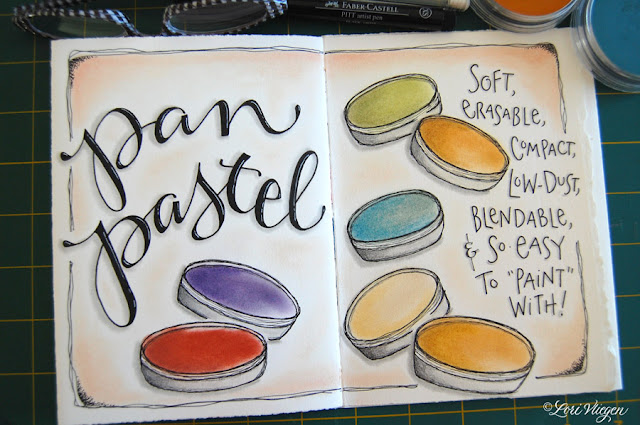 FABER-CASTELL
PITT artist pen
pan
pastel
SOFT,
ERASABLE,
COMPACT,
LOW-DUST,
BLENDABLE,
& SO EASY
TO "PAINT"
WITH!
© Lori Vliegen